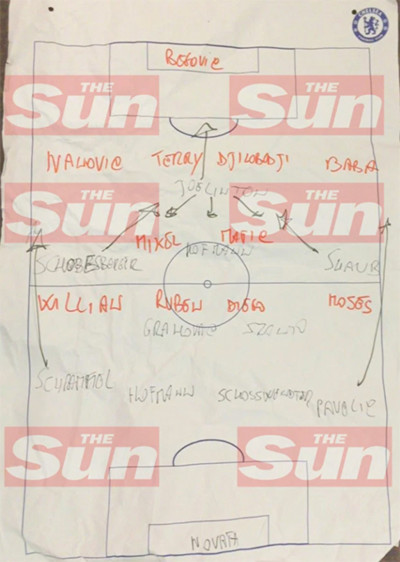 CHELSEA
BEGOVIC
THE THE
Sun Sun
IVANOVIC TERRY DJILOBODJI BABA
THE THE
Sun Sun
JOELINTON
MIKEL MATIC
HOFMANN
SCHOBESBERGER SCHAUB
WILLIAN RUBEN DIEGO MOSES
GRAHOVIC SZANTO
SCHRAMMEL HOFMANN SCHOSSWENDTER PAVELIC
THE THE
Sun Sun
NOVOTA